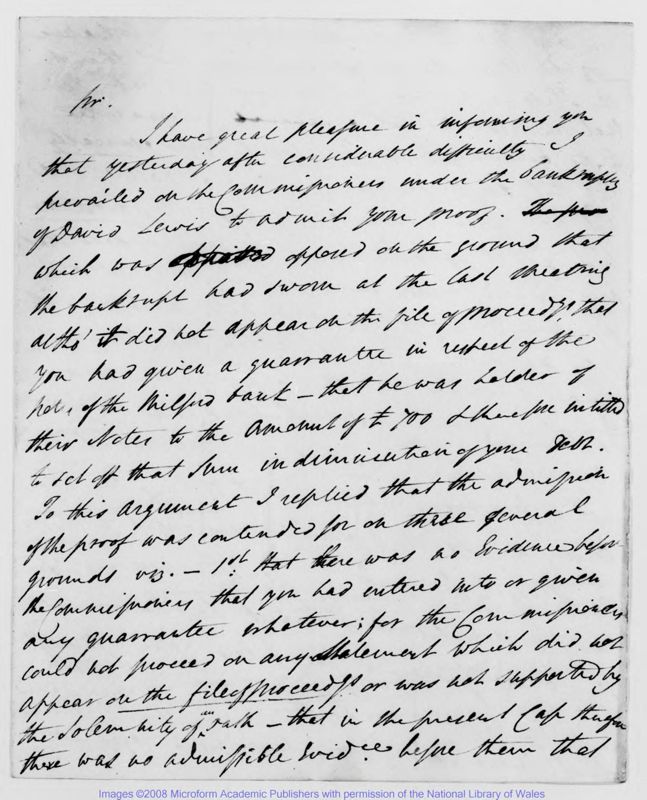 Sir.
I have great pleasure in informing you
that yesterday after considerable difficulty I
prevailed on the Commissioners under the bankruptcy
of David Lewis to admit your proof. The pro
which was opposed on the ground that
the bankrupt had sworn at the last meeting
altho' it did not appear on the file of Proceedgs. that
you had given a guarrantee in respect of the
notes of the Milford bank – that he was holder of
their Notes to the Amount of £700 & therefore intitled
to set off that Sum in diminution of your Debt.
To this argument I replied that the admission
of the proof was contended for on three several
grounds viz. – 1st. that there was no Evidence before
the Commissioners that you had entered into or given
any guarrantee whatever; for the Commissioners
could not proceed on any statement which did not
appear on the file of Proceedgs. or was not supported by
the Solemnity of an oath – that in the present Case therefore
there was no admissible Evidce. before them that
Images ©2008 Microform Academic Publishers with permission of the National Library of Wales